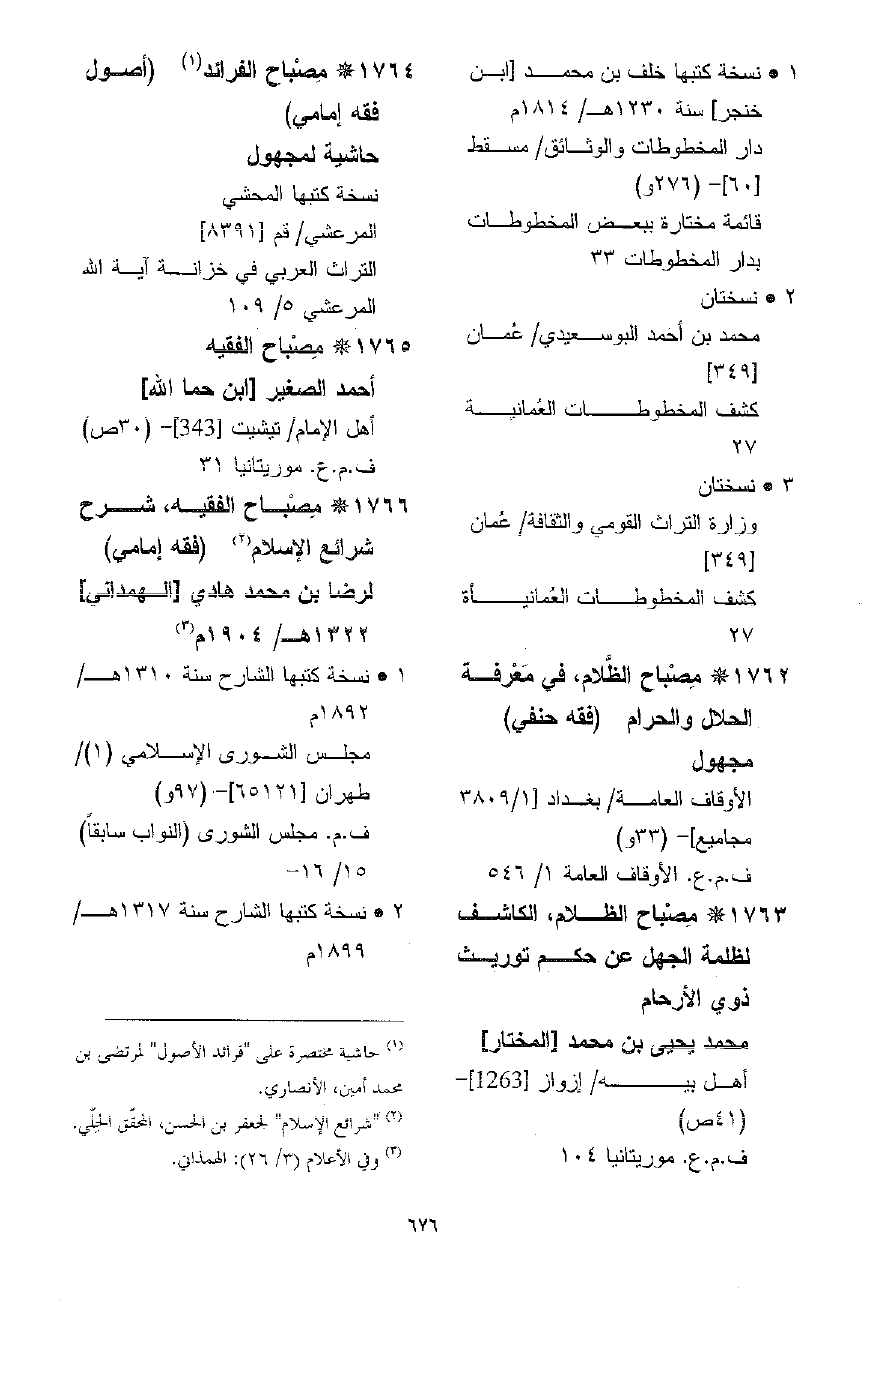 ١ • نسخة كتبها خلف بن محمد [ابن
خنجر] سنة ١٢٣٠هـ/ ١٨١٤م
دار المخطوطات والوثائق/ مسقط
[٦٠]- (٢٧٦و)
قائمة مختارة ببعض المخطوطات
بدار المخطوطات ٣٣
٢ • نسختان
محمد بن أحمد البوسعيدي/ عُمان
[٣٤٩]
كشف المخطوطات العُمانية
٢٧
٣ • نسختان
وزارة التراث القومي والثقافة/ عُمان
[٣٤٩]
كشف المخطوطات العُمانيأة
٢٧
١٧٦٢ * مِصْباح الظَّلام، في مَعْرفة
الحلال والحرام (فقه حنفي)
مجهول
الأوقاف العامة/ بغداد [٣٨٠٩/١
مجاميع]- (٣٣و)
ف.م.ع. الأوقاف العامة ١/ ٥٤٦
١٧٦٣ * مِصْباح الظلام، الكاشف
لظلمة الجهل عن حكم توريث
ذوي الأرحام
محمد يحيى بن محمد [المختار]
أهل بيه/ إزواز [1263]-
(٤١ص)
ف.م.ع. موريتانيا ١٠٤
١٧٦٤ * مِصْباح الفرائد(١) (أصول
فقه إمامي)
حاشية لمجهول
نسخة كتبها المحشي
المرعشي/ قم [٨٣٩١]
التراث العربي في خزانة آية الله
المرعشي ٥/ ١٠٩
١٧٦٥ * مِصْباح الفقيه
أحمد الصغير [ابن حما الله]
أهل الإمام/ تيشيت [343]- (٣٠ص)
ف.م.ع. موريتانيا ٣١
١٧٦٦ * مِصْباح الفقيه، شرح
شرائع الإسلام(٢) (فقه إمامي)
لرضا بن محمد هادي [الهمداني]
١٣٢٢هـ/ ١٩٠٤م(٣)
١ • نسخة كتبها الشارح سنة ١٣١٠هـ/
١٨٩٢م
مجلس الشورى الإسلامي (١)/
طهران [٦٥١٢١]- (٩٧و)
ف.م. مجلس الشورى (النواب سابقاً)
١٥/ ١٦-
٢ • نسخة كتبها الشارح سنة ١٣١٧هـ/
١٨٩٩م
(١) حاشية مختصرة على "فرائد الأصول" لمرتضى بن
محمد أمين، الأنصاري.
(٢) "شرائع الإسلام" لجعفر بن الحسن، المحقّق الحلّي.
(٣) وفي الأعلام (٣/ ٢٦): الهمذاني.
٦٧٦